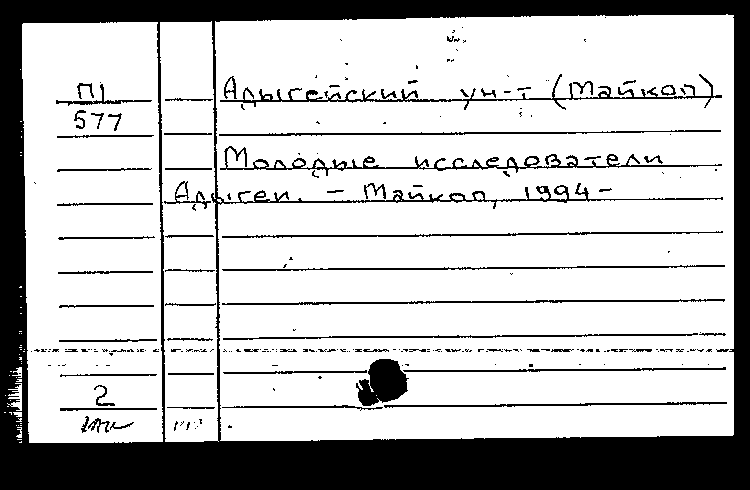 П1 Адыгейский ун-т (Майкоп)
577
Молодые исследователи
Адыгеи. - Майкоп, 1994-
2